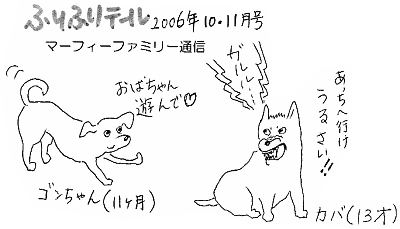 ふりふりテイル 2006年10・11月号
マーフィーファミリー通信
ガルルー
おばちゃん
遊んで♡
あっちへ行け
うるさい!!
ゴンちゃん(11ヶ月)
カバ(13才)